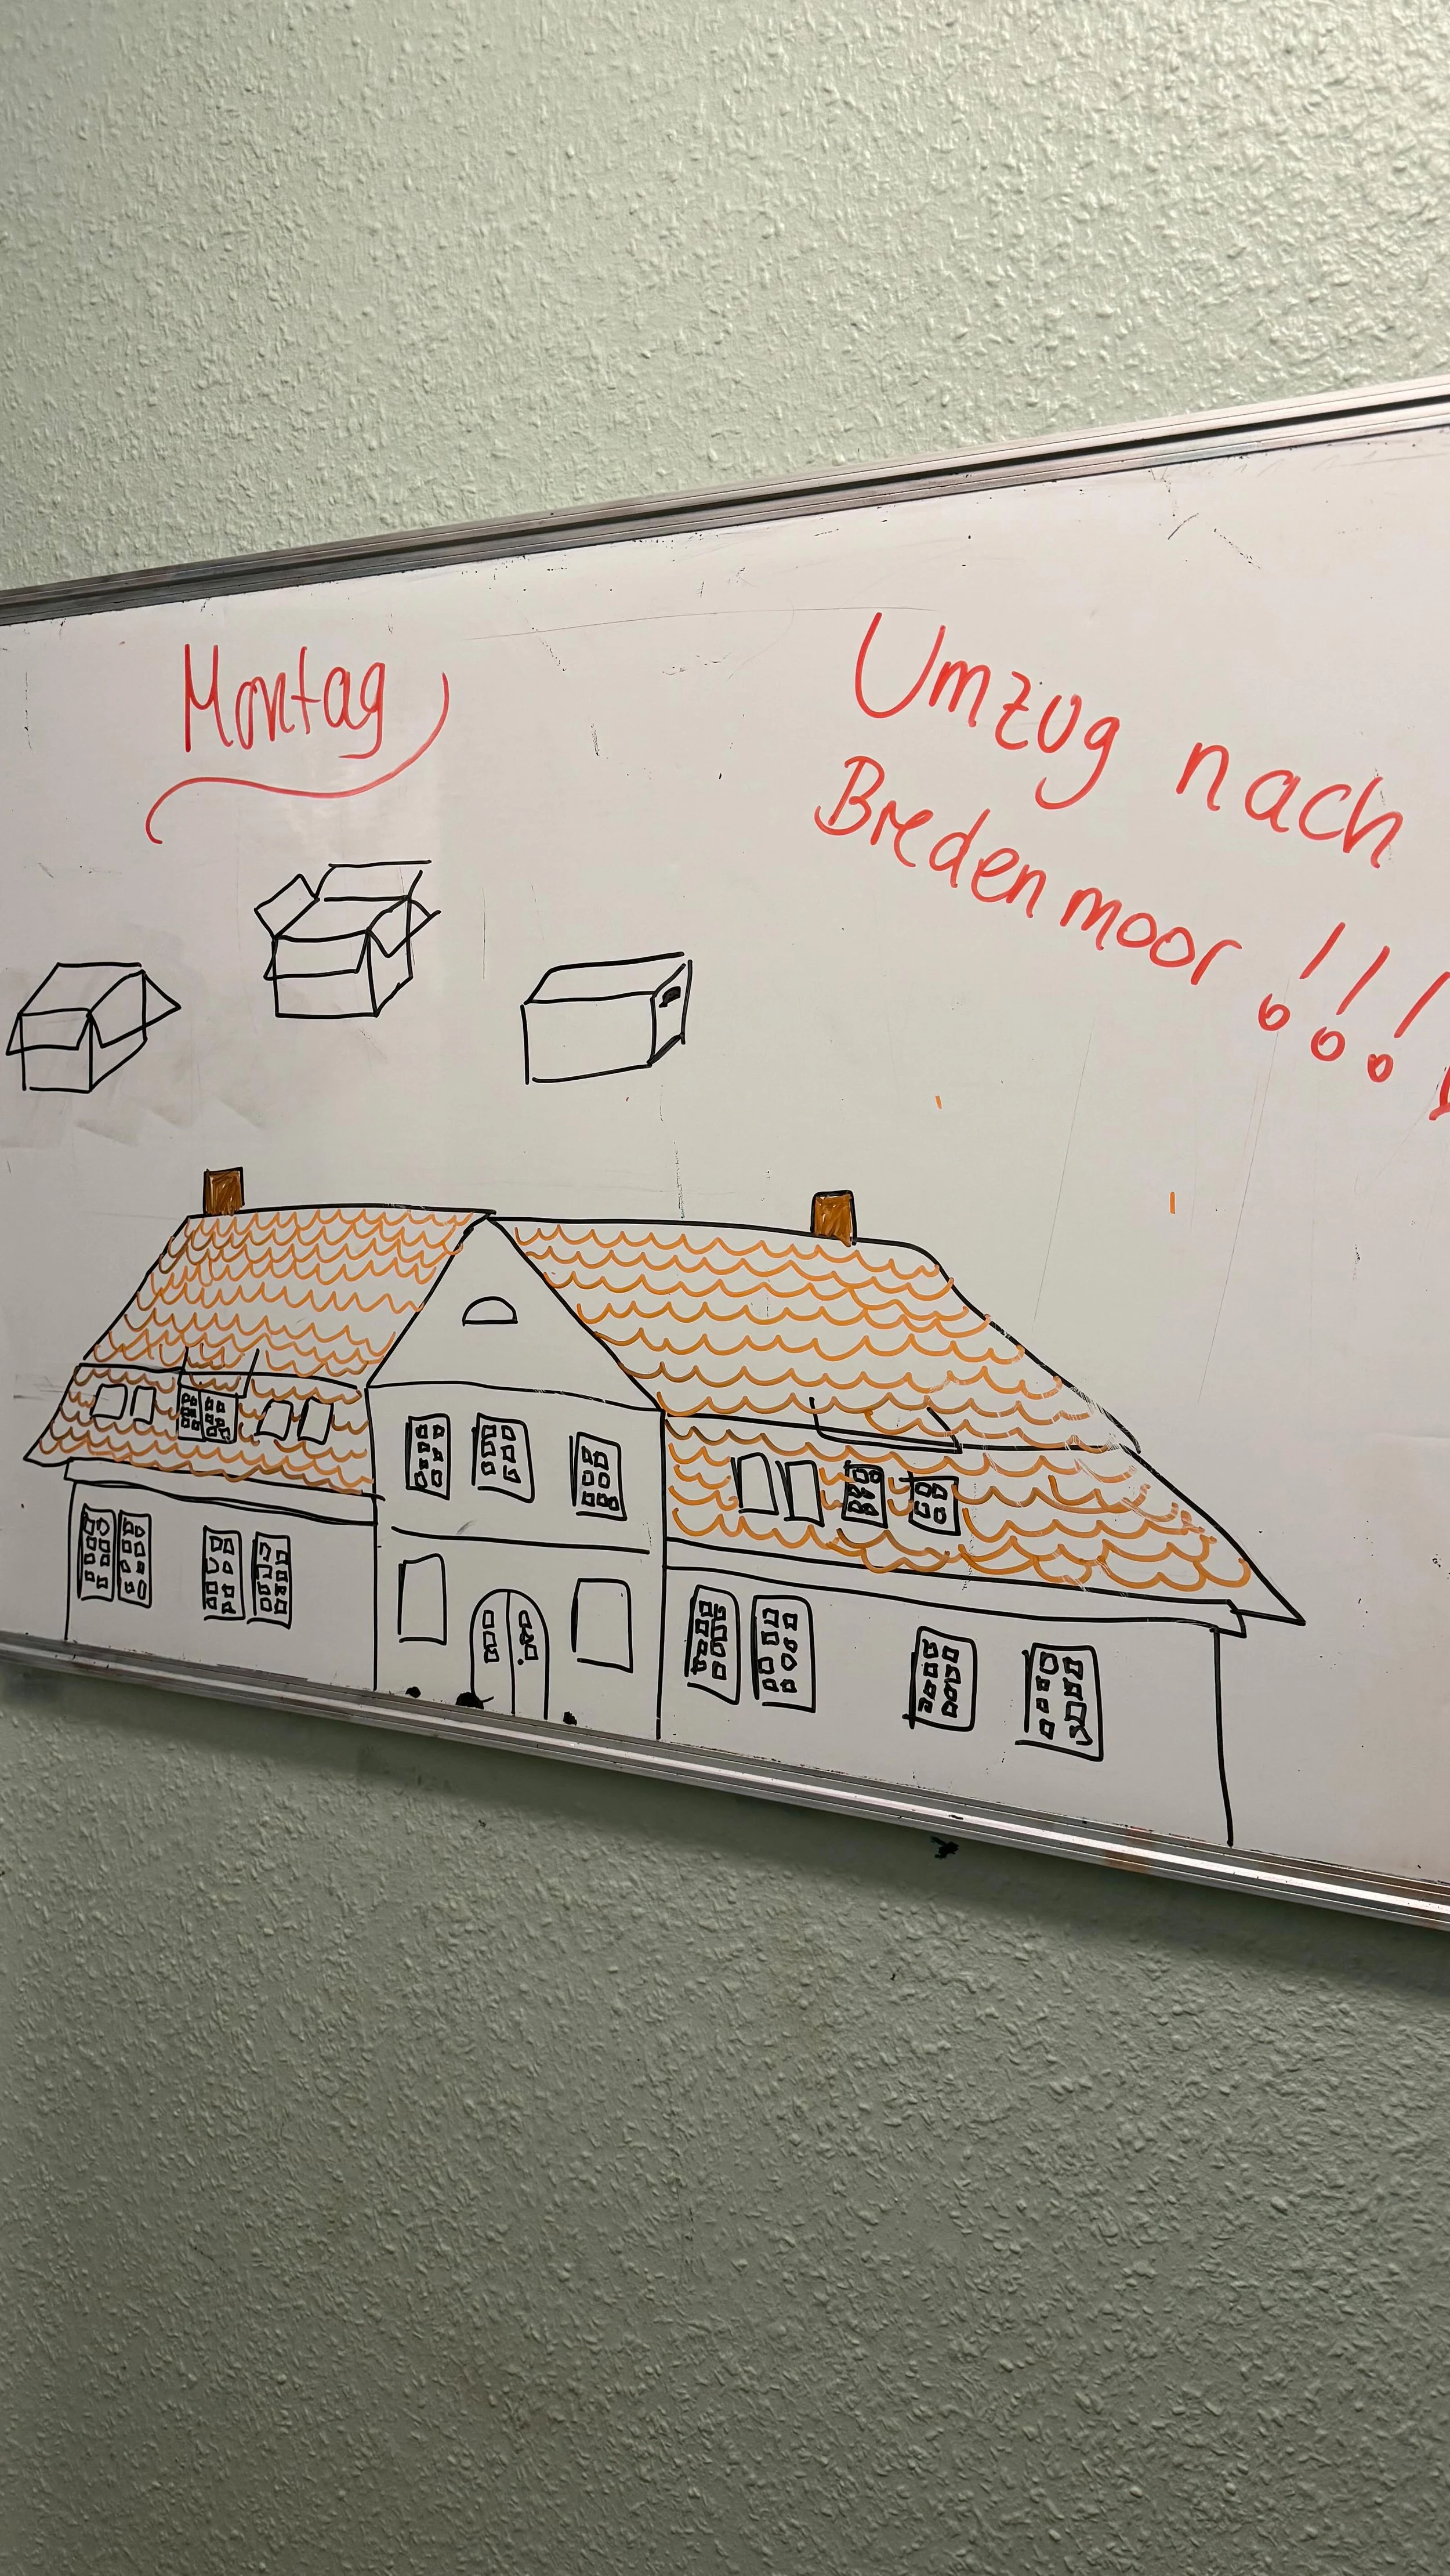 Montag
Umzug nach
Bredenmoor !!!